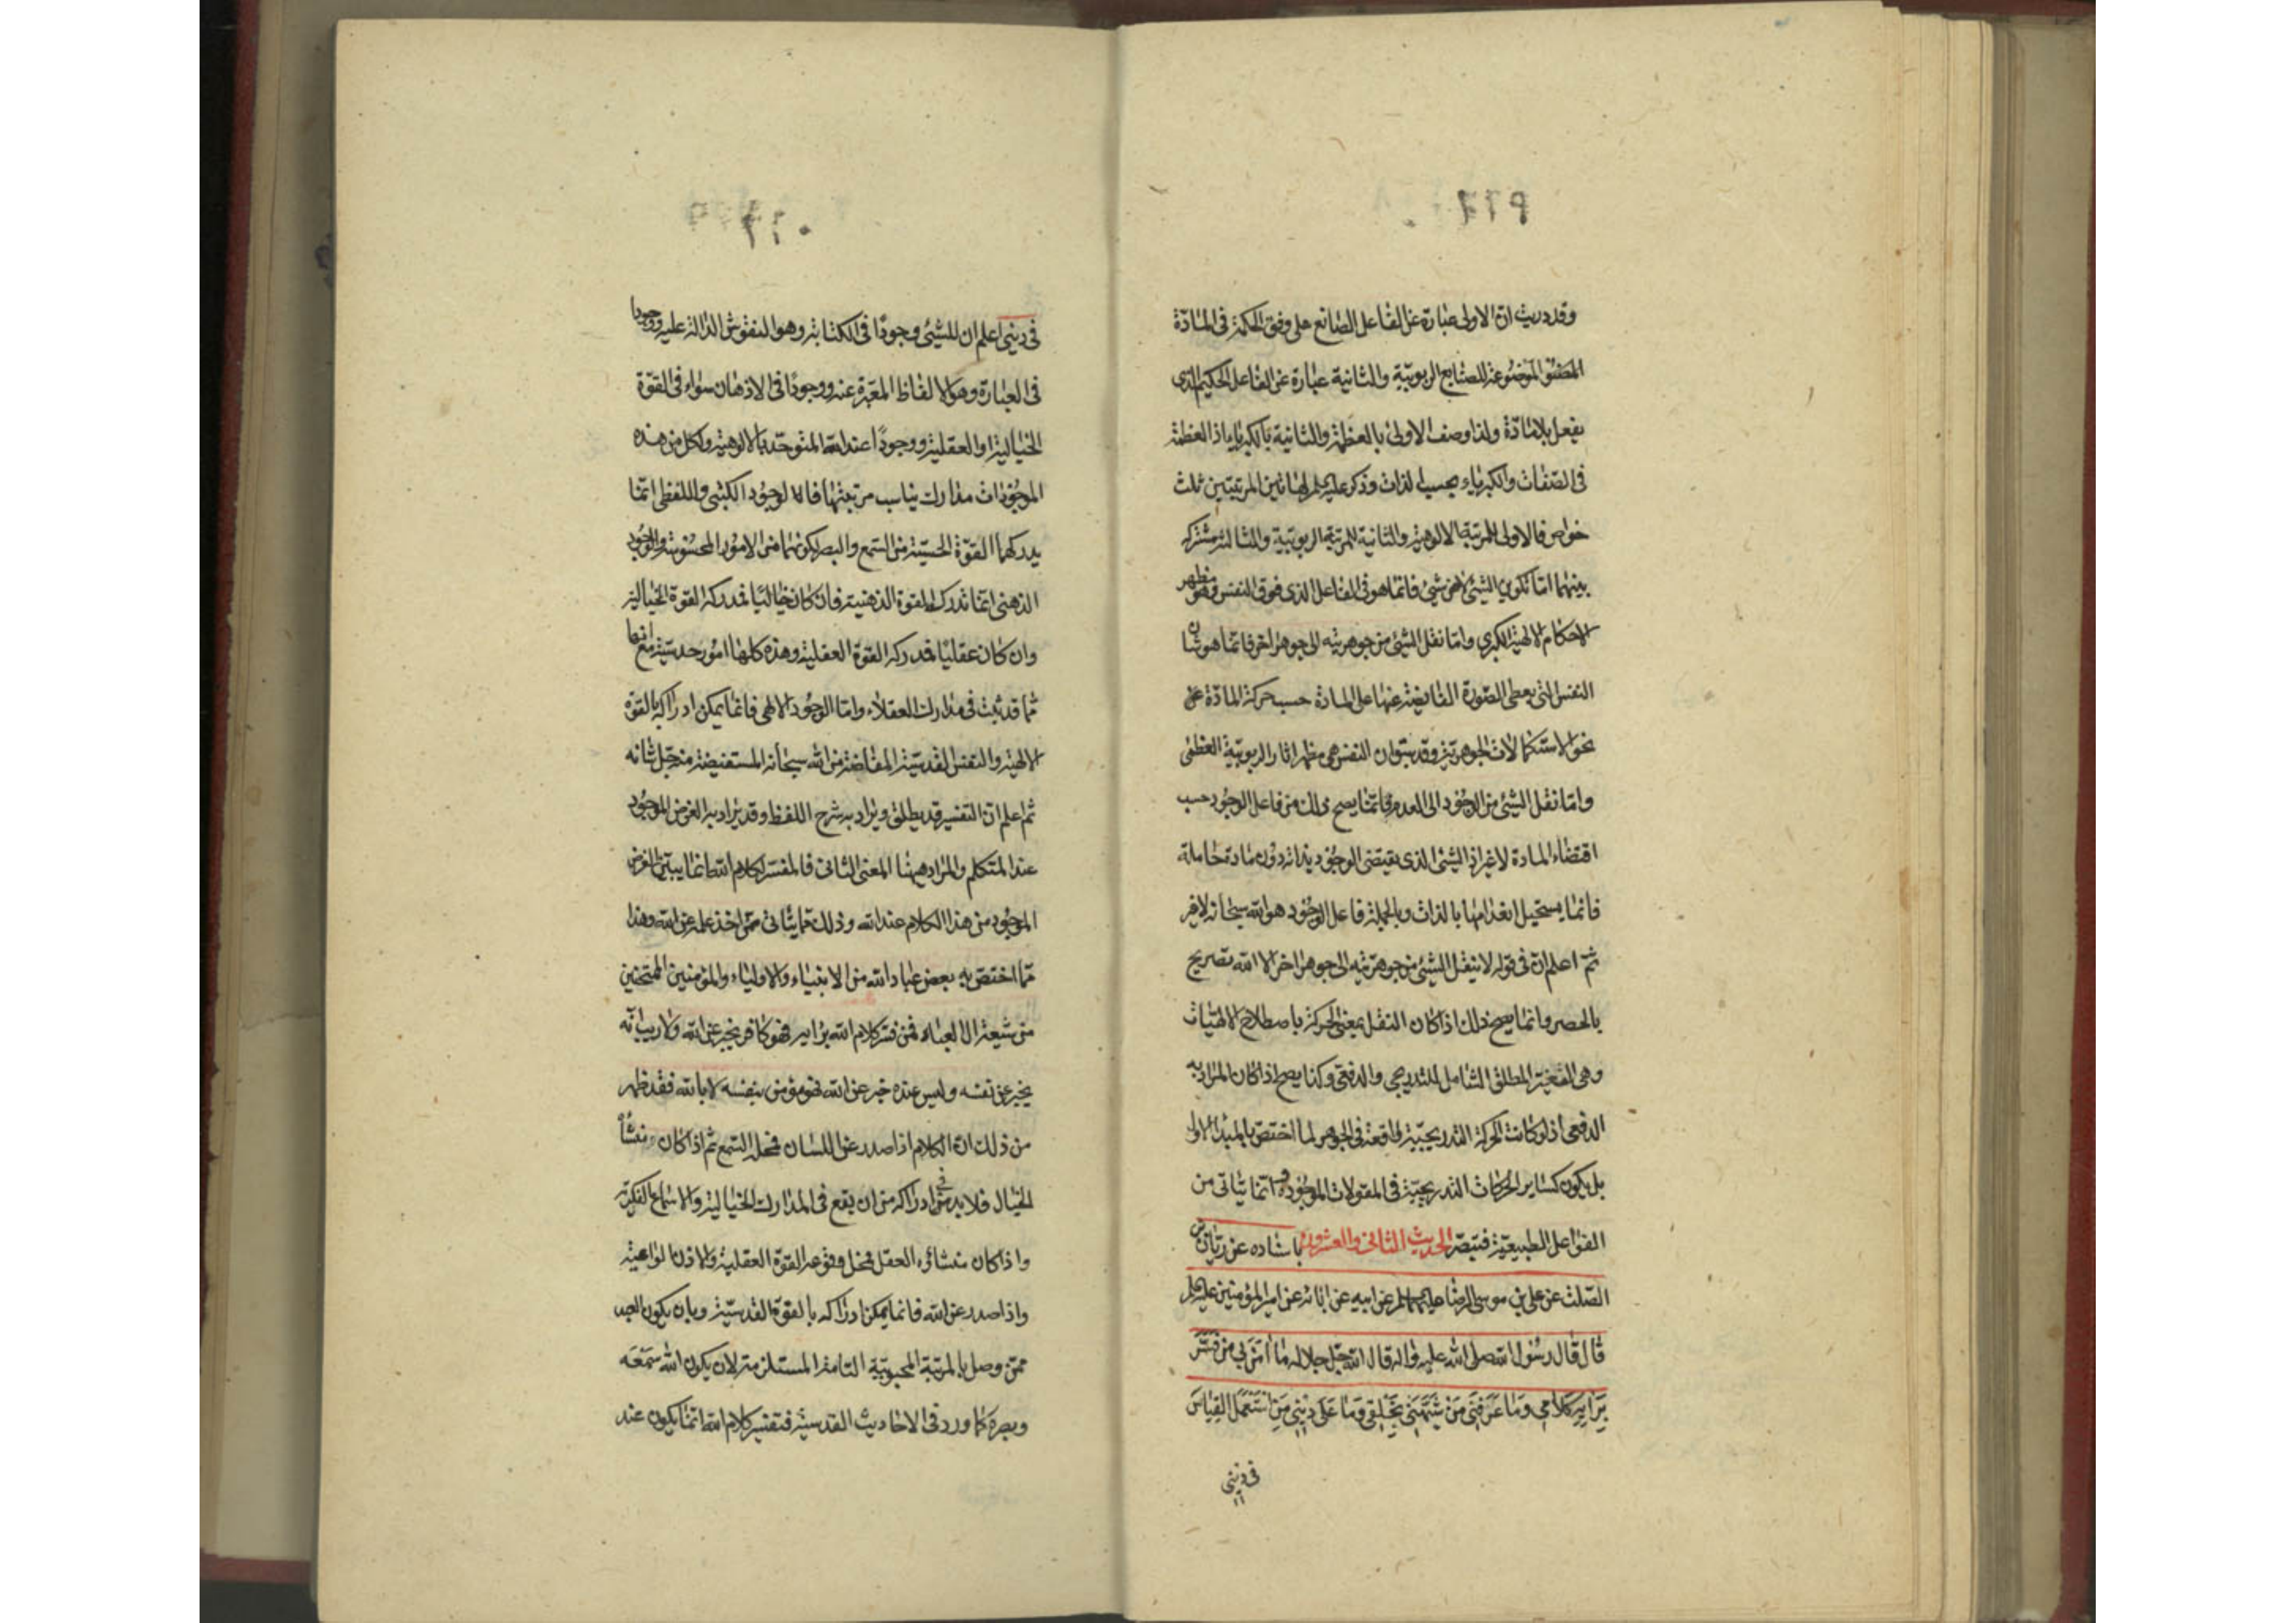 وقد دريت ان الاولى عبارة عن الفاعل الصانع على وفق الحكمة فى المادّة
الموضوعة للصنايع الربوبيّة والثانية عبارة عن الفاعل الحكيم الذى
يفعل بلا مادّة ولذا وصف الاولى بالعظمة والثانية بالكبرياء اذ العظمة
فى الصّفات والكبرياء بحسب الذات وذكر عليه السلم لهاتين المرتبتين ثلث
خواص فالاولى للمرتبة الالوهية والثانية للمرتبة الربوبيّة والثالثة مشتركة
بينهما امّا تكوين الشئ لا من شئ فانما هو فى الفاعل الذى فوق النفس فهو مظهر
الاحكام الالهية الكبرى وامّا نقل الشئ من جوهريته الى جوهر اخر فانّما هو شان
النفس التى يعطى الصّورة الفايضة عنها على المادة حسب حركة المادّة على
نحو الاستكمالات الجوهريّة وقد سبق ان النفس هى مظهر اثار الربوبيّة العظمى
وامّا نقل الشئ من الوجود الى العدم فانّما يصح ذلك من فاعل الوجود حسب
اقتضاء المادة لا غير اذ الشئ الذى يقتضى الوجود بذاته دون مادة حاملة
فانما يستحيل انعدامها بالذات وبالجملة فاعل الوجود هو الله سبحانه لا غير
ثمّ اعلم ان فى قوله لا ينقل الشئ من جوهريّته الى جوهر اخر الا الله تصريح
بالحصر وانما يصح ذلك اذا كان النقل بمعنى الحركة باصطلاح الالهيّات
وهى التغيّر المطلق الشامل للتدريجى والدفعى وكذا يصح اذا كان المراد به
الدفعى اذ لو كانت الحركة التدريجيّة واقعة فى الجوهر لما اختصّ بالمبدأ الاول
بل يكون كساير الحركات التدريجيّة فى المقولات الموجودة وانما يتأتى من
الفواعل الطبيعيّة فتبصّر الحديث الثانى والعشرون باسناده عن ريّان بن
الصّلت عن على بن موسى الرضا عليهما السلم عن ابيه عن ابائه عن امير المؤمنين عليه السلم
قال قال رسول الله صلى الله عليه واله قال الله جلّ جلاله ما امن بى من فسّر
برايه كلامى وما عرفنى من شبّهنى بخلقى وما على دينى من استعمل القياس
فى دينى
فى دينى اعلم ان للشئ وجودًا فى الكتابة وهو النقوش الدالة عليه ووجودا
فى العبارة وهو الالفاظ المعبّرة عنه ووجودًا فى الاذهان سواء فى القوّة
الخيالية او العقلية ووجودًا عند الله المتوحّد بالالوهية ولكل من هذه
الموجودات مدارك يناسب مرتبتها فالوجود الكتبى واللفظى انّما
يدركهما القوّة الحسيّة من السّمع والبصر لكونهما من الامور المحسوسة والوجود
الذهنى انّما تدركه القوة الذهنية فان كان خياليًا فتدركه القوة الخيالية
وان كان عقليًا فتدركه القوة العقلية وهذه كلها امور حدسيّة مع انها
ممّا قد ثبت فى مدارك العقلاء وامّا الوجود الالهى فانما يمكن ادراكه بالقوّة
الالهية والنفس القدسيّة المفاضة من الله سبحانه المستفيضة منه جلّ شانه
ثم اعلم ان التفسير قد يطلق ويراد به شرح اللفظ وقد يراد به الغرض الموجود
عند المتكلم والمراد هيهنا المعنى الثانى فالمفسّر لكلام الله انما يبيّن الغرض
الموجود من هذا الكلام عند الله وذلك ممّا يتأتى ممّن اخذ علمه عن الله وهذا
ممّا اختصّ به بعض عباد الله من الانبياء والاولياء والمؤمنين الممتحنين
من شيعة ال العباء فمن فسّر كلام الله برايه فهو كافر يخبر عن الله ولا ريب انّه
يخبر عن نفسه وليس عنده خبر عن الله فهو مؤمن بنفسه لا بالله فقد ظهر
من ذلك انّ الكلام اذا صدر عن اللسان فمحله السّمع ثم اذا كان منشأه
الخيال فلا بدّ فى ادراكه من ان يقع فى المدارك الخيالية والاسماع الفكريّة
واذا كان منشائه العقل فمحل وقوعه القوّة العقلية والاذن الواعية
واذا صدر عن الله فانما يمكن ادراكه بالقوّة القدسيّة وبان يكون العبد
ممّن وصل بالمرتبة المحبوبيّة التامة المستلزمة لان يكون الله سمعه
وبصره كما ورد فى الاحاديث القدسيّة فتفسير كلام الله انّما يكون عند